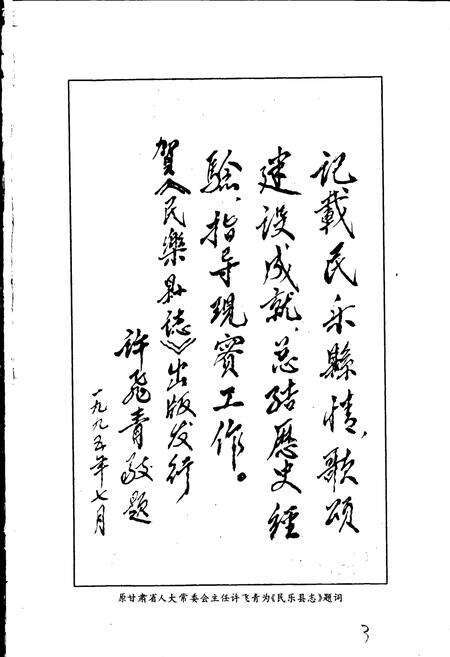 记載民乐縣情，歌颂
建设成就，总结歷史經
驗，指导現實工作。
賀《民樂县志》出版发行
许飞青敬題
一九九五年七月
原甘肃省人大常委会主任许飞青为《民乐县志》题词
3